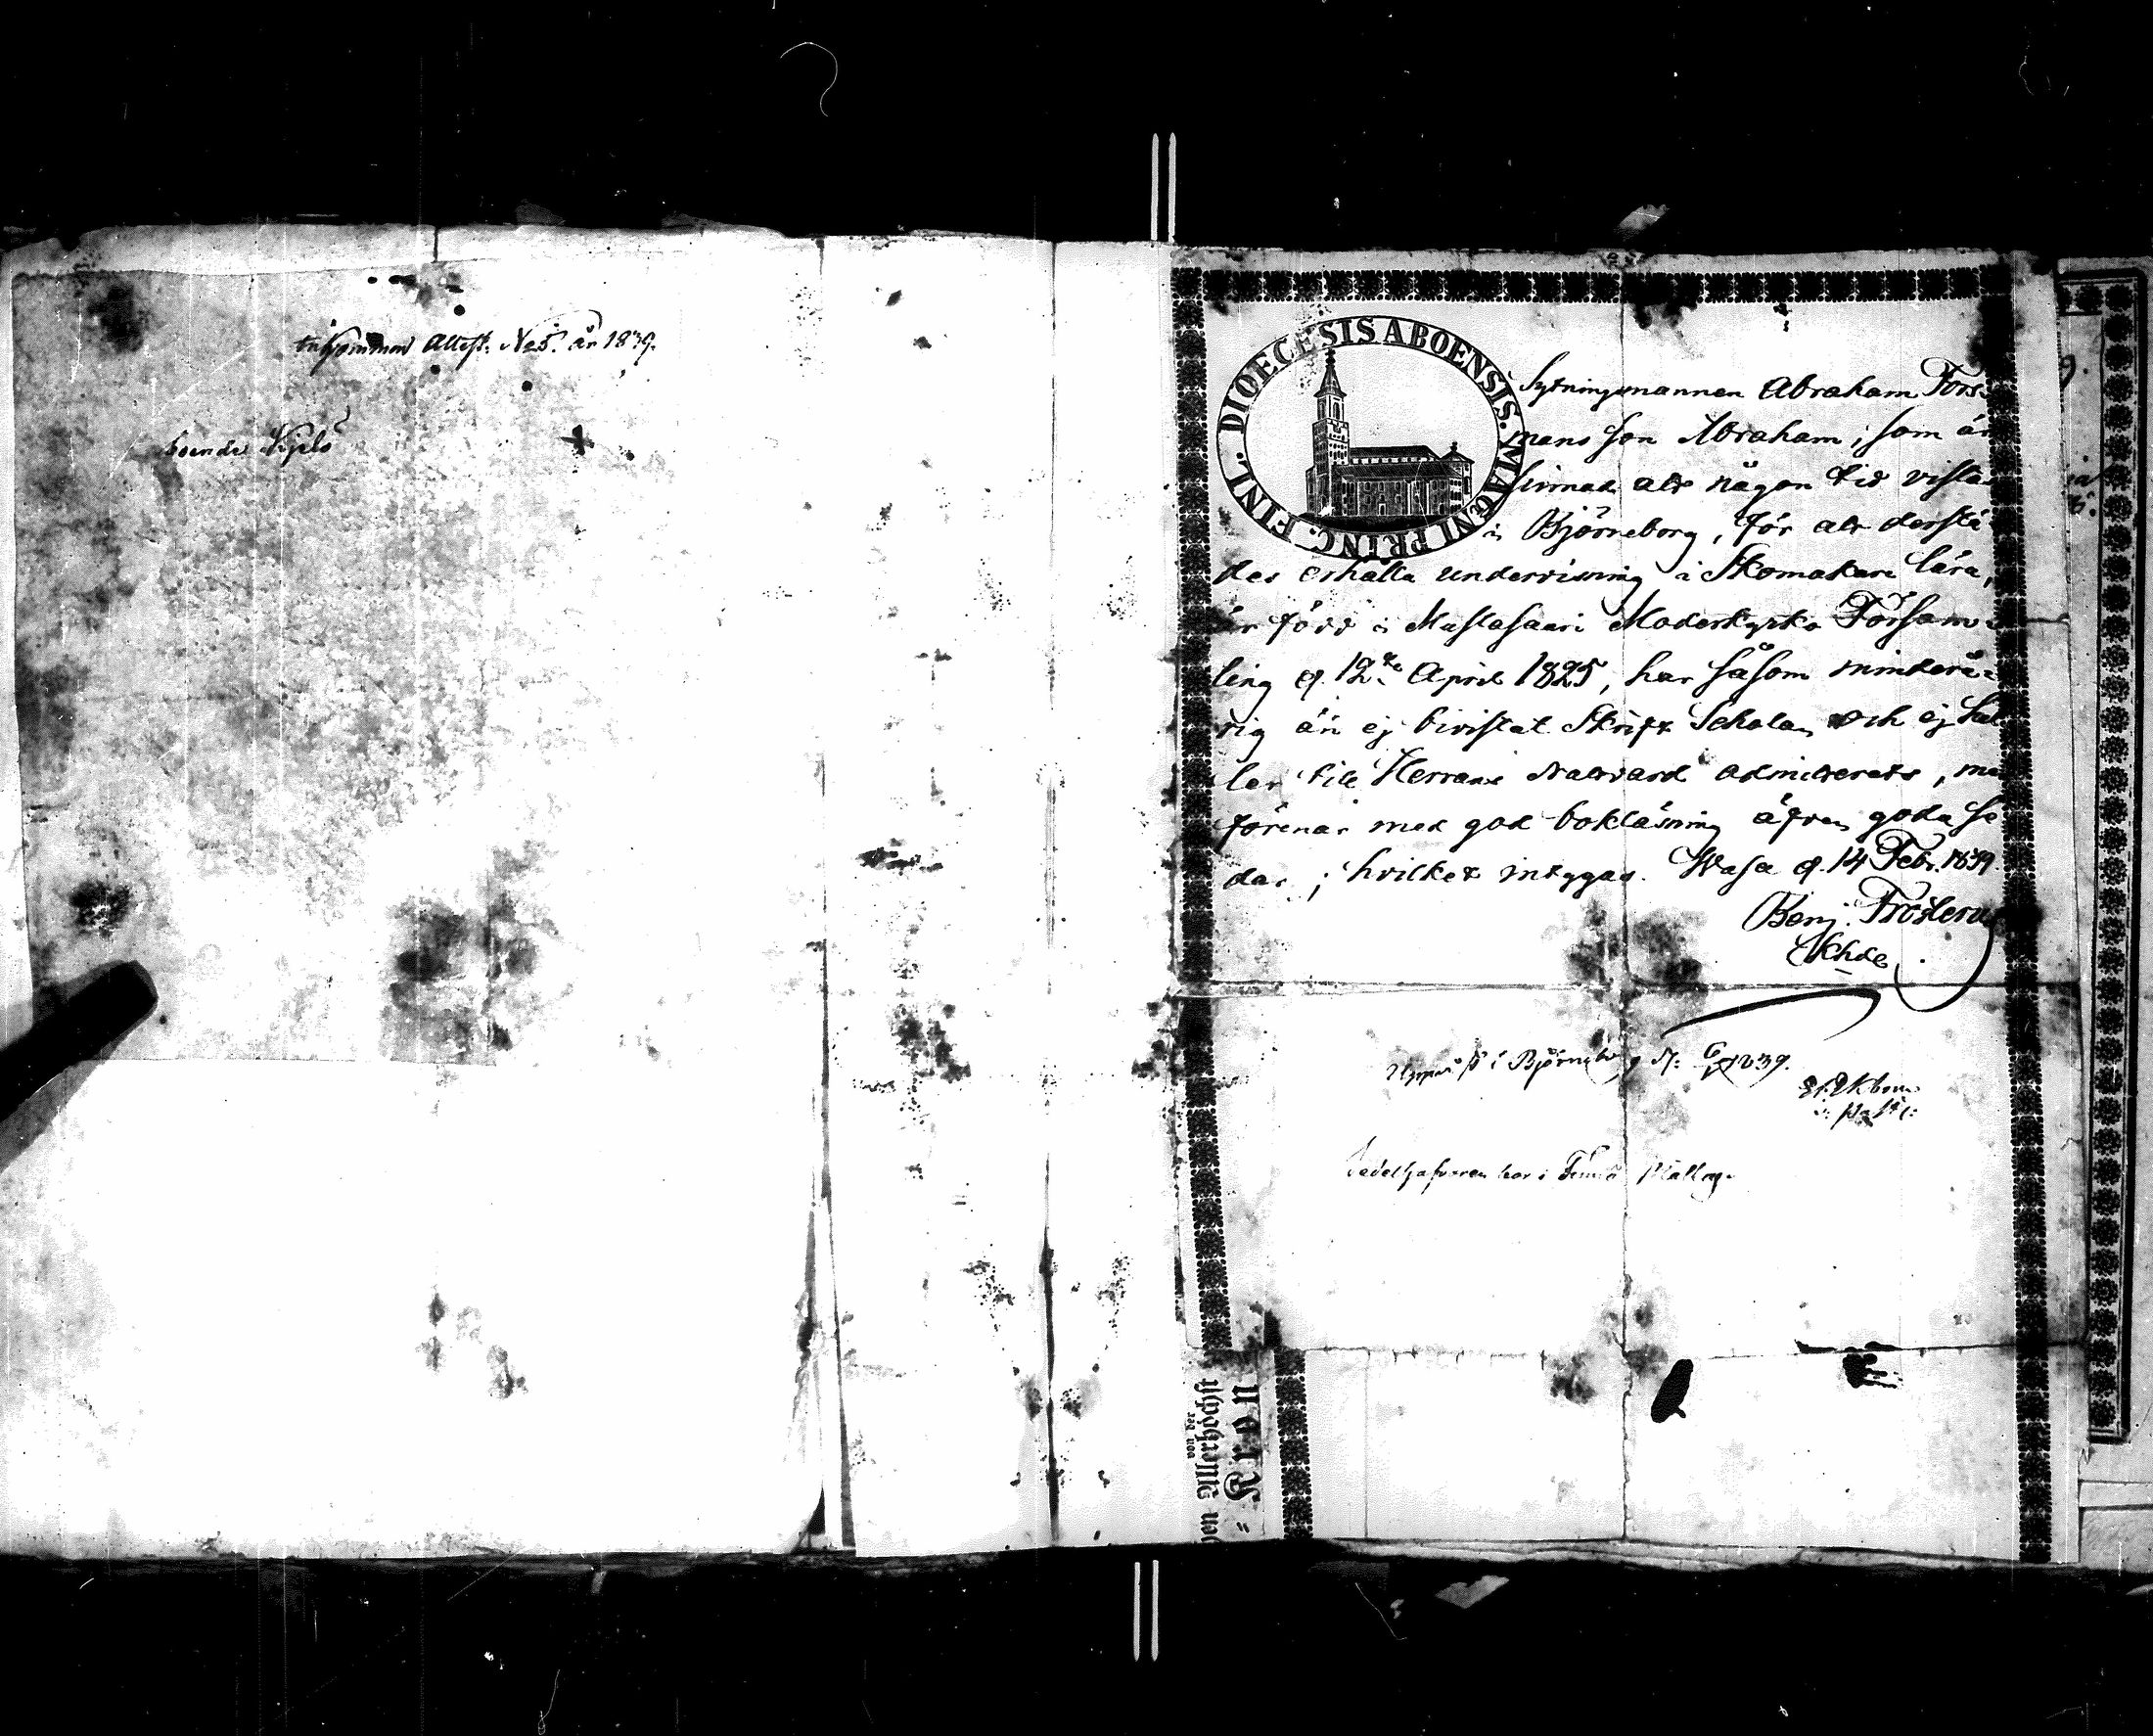 inkommen Attest. No 5. år 1839.
boende
DIOECESIS ABOENSIS. MAGNI PRINC. FINL.
Sytningsmannen Abraham Forss
mans son Abraham, som är
sinnad att någon tid vistas
i Björneborg, för att derstä-
des erhålla undervisning i Skomakare lära,
är född i Mustasaari Moderkyrko Försam-
ling d. 12te April 1825, har såsom minderå-
rig än ej bivistat Skrift Scholan och ej hel
ler till Herrans Nattvard admitterats, men
förenar med god bokläsning äfven goda se
der; hvilket intygas. Wasa d. 14 Febr. 1839.
Benj. Frosterus
Khde
Uppvist i Björneborg d.
1839.
Ekbom
Sedelhafvaren har i
von der
Allerhöchst
Kron